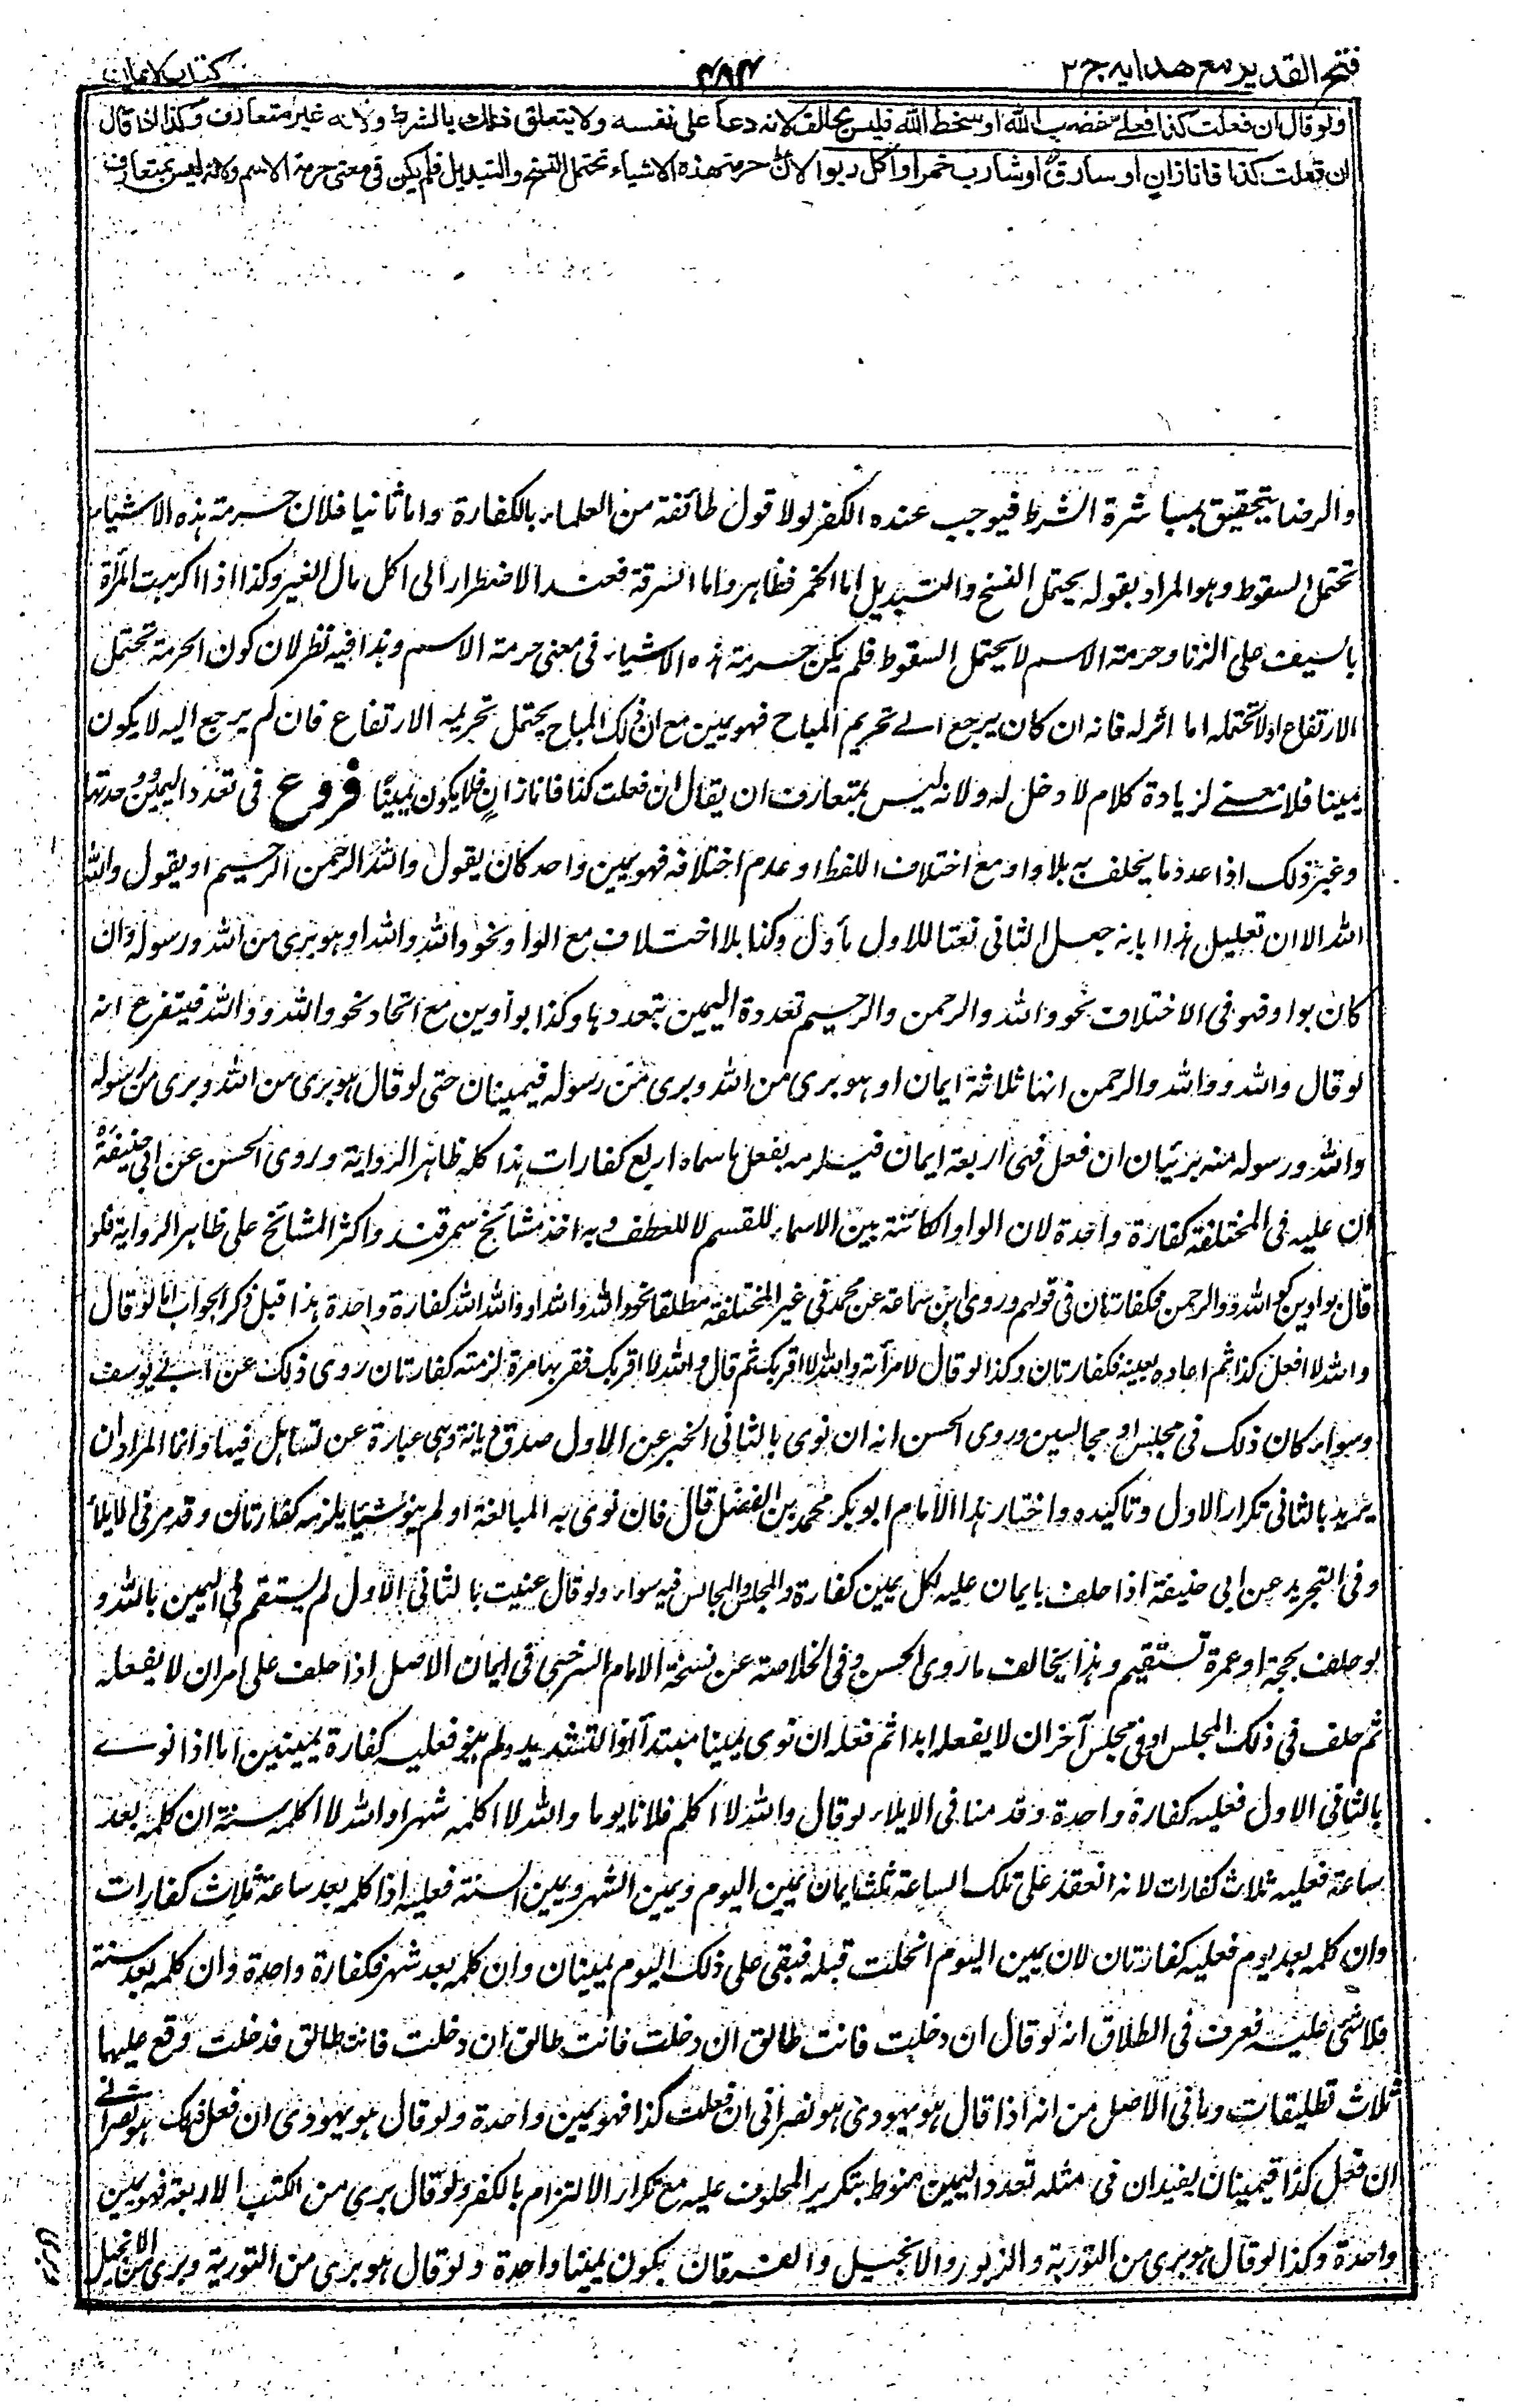 فتح القدير مع هدايه ج ٢
٤٩٤
كتاب الايمان
ولو قال ان فعلت كذا فعلي غضب الله او سخط الله فليس بحالف لانه دعا على نفسه ولا يتعلق ذلك بالشرط ولانه غير متعارف وكذا اذا قال
ان فعلت كذا فانا زان او سارق او شارب خمر او آكل ربوا لان حرمة هذه الاشياء تحتمل النسخ والتبديل فلم يكن في معنى حرمة الاسم ولانه ليس بمتعارف
والرضا يتحقق بمباشرة الشرط فيوجب عنده الكفر لولا قول طائفة من العلماء بالكفارة واما ثانيا فلان حرمة هذه الاشياء
تحتمل السقوط وهو المراد بقوله يحتمل الفسخ والتبديل اما الخمر فظاهر واما السرقة فعند الاضطرار الى اكل مال الغير وكذا اذا اكرهت المرأة
بالسيف على الزنا وحرمة الاسم لا يحتمل السقوط فلم يكن حرمة هذه الاشياء في معنى حرمة الاسم وهذا فيه نظر لان كون الحرمة تحتمل
الارتفاع او لا تحتمله اما اثر له فانه ان كان يرجع الى تحريم المباح فهو يمين مع ان ذلك المباح يحتمل تحريمه الارتفاع فان لم يرجع اليه لا يكون
يمينا فلا معنى لزيادة كلام لا دخل له ولانه ليس بمتعارف ان يقال ان فعلت كذا فانا زان فلا يكون يمينا فروع في تعدد اليمين ووحدتها
وغير ذلك اذا عدد ما يحلف به بلا واو مع اختلاف اللفظ او عدم اختلافه فهو يمين واحد كان يقول والله الرحمن الرحيم او يقول والله
الله الا ان تعليل هذا بانه جعل الثاني نعتا للاول مأول وكذا بلا اختلاف مع الواو نحو والله والله او هو بري من الله ورسوله وان
كان بواو في الاختلاف نحو والله والرحمن والرحيم تعددة اليمين بتعددها وكذا بواوين مع اتحاد نحو والله ووالله فيتفرع انه
لو قال والله ووالله والرحمن انها ثلاثة ايمان او هو بري من الله وبري من رسوله فيمينان حتى لو قال هو بري من الله وبري من رسوله
والله ورسوله منه بريئان ان فعل فهي اربعة ايمان فيلزمه بفعل ما سماه اربع كفارات هذا كله ظاهر الرواية وروى الحسن عن ابي حنيفة
ان عليه في المختلفة كفارة واحدة لان الواو الكائنة بين الاسماء للقسم لا للعطف وبه اخذ مشائخ سمرقند واكثر المشائخ على ظاهر الرواية فلو
قال بواوين كوالله ووالرحمن فكفارتان في قولهم وروى ابن سماعة عن محمد في غير المختلفة مطلقا نحو والله والله او والله الله كفارة واحدة هذا قبل ذكر الجواب اما لو قال
والله لا افعل كذا ثم اعاده بعينه فكفارتان وكذا لو قال لامرأته والله لا اقربك ثم قال والله لا اقربك فقربها مرة لزمته كفارتان روى ذلك عن ابي يوسف
وسواء كان ذلك في مجلس او مجالسين وروى الحسن انه ان نوى بالثاني الخبر عن الاول صدق ديانة وهي عبارة عن تساهل فيها وانما المراد ان
يريد بالثاني تكرار الاول وتاكيده واختار هذا الامام ابو بكر محمد بن الفضل قال فان نوى به المبالغة او لم ينو شيئا يلزمه كفارتان وقد مر في الايلاء
وفي التجريد عن ابي حنيفة اذا حلف بايمان عليه لكل يمين كفارة والمجلس والمجالس فيه سواء ولو قال عنيت بالثاني الاول لم يستقم في اليمين بالله و
لو حلف بحجة او عمرة تستقيم وهذا يخالف ما روى الحسن وفي الخلاصة عن نسخة الامام السرخسي في ايمان الاصل اذا حلف على امر ان لا يفعله
ثم حلف في ذلك المجلس او في مجلس آخر ان لا يفعله ابدا ثم فعله ان نوى يمينا مبتدأ او التشديد او لم ينو فعليه كفارة يمينين اما اذا نوى
بالثاني الاول فعليه كفارة واحدة وقد منا في الايلاء لو قال والله لا اكلم فلانا يوما والله لا اكلمه شهرا والله لا اكلمه سنة ان كلمه بعد
ساعة فعليه ثلاث كفارات لانه انعقد على تلك الساعة ثلث ايمان يمين اليوم ويمين الشهر ويمين السنة فعليه اذا كلمه بعد ساعة ثلاث كفارات
وان كلمه بعد يوم فعليه كفارتان لان يمين اليوم انحلت قبله فبقي على ذلك اليوم يمينان وان كلمه بعد شهر فكفارة واحدة وان كلمه بعد سنة
فلا شي عليه فعرف في الطلاق انه لو قال ان دخلت فانت طالق ان دخلت فانت طالق ان دخلت فانت طالق فدخلت وقع عليها
ثلاث تطليقات وما في الاصل من انه اذا قال هو يهودي هو نصراني ان فعلت كذا فهو يمين واحدة ولو قال هو يهودي ان فعل كذا هو نصراني
ان فعل كذا فيمينان يفيد ان في مثله تعدد اليمين منوط بتكرير المحلوف عليه مع تكرار الالتزام بالكفر ولو قال بري من الكتب الاربعة فهو يمين
واحدة وكذا لو قال هو بري من التورية والزبور والانجيل والفرقان يكون يمينا واحدة ولو قال هو بري من التورية وبري من الانجيل
وبري